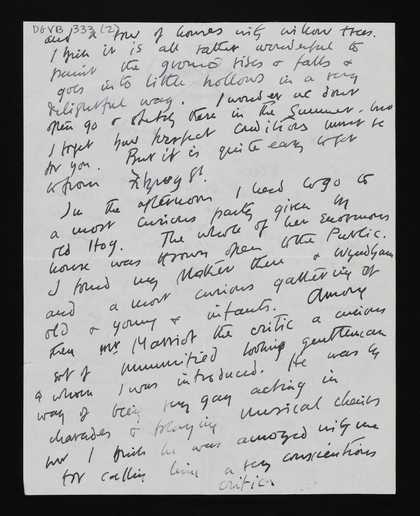 DGVB 333 (2)
and a row of houses with willow trees.
I think it is all rather wonderful to
paint the ground rises & falls &
goes into little hollows in a very
delightful way. I wonder we dont
often go & sketch there in the Summer. but
I forget how perfect conditions must be
for you. But it is quite easy to get
to from Fitzroy St.
In the afternoon I had to go to
a most curious party given by
old Hog. The whole of her Enormous
house was thrown open to the Public.
I found my Mother there & Wyndham
and a most curious gathering of
old & young & infants. Among
them Marriot the critic a curious
sort of mummified looking gentleman
to whom I was introduced. He was by
way of being very gay acting in
charades & playing musical chairs
but I think he was annoyed with me
for calling him a very conscientious
critic